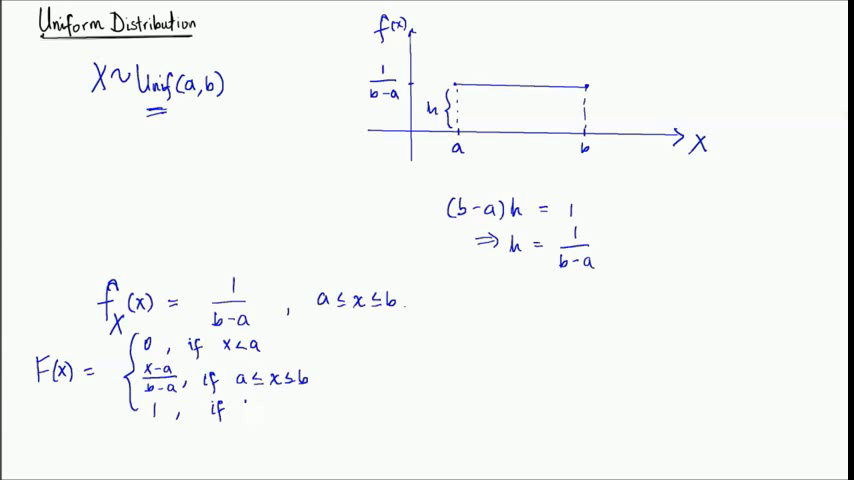 Uniform Distribution
X ~ Unif(a,b)
f(x)
1/(b-a)
h {
a b X
(b-a)h = 1
⇒ h = 1/(b-a)
f_X(x) = 1/(b-a) , a ≤ x ≤ b.
F(x) = { 0 , if x < a
(x-a)/(b-a), if a ≤ x ≤ b
1 , if